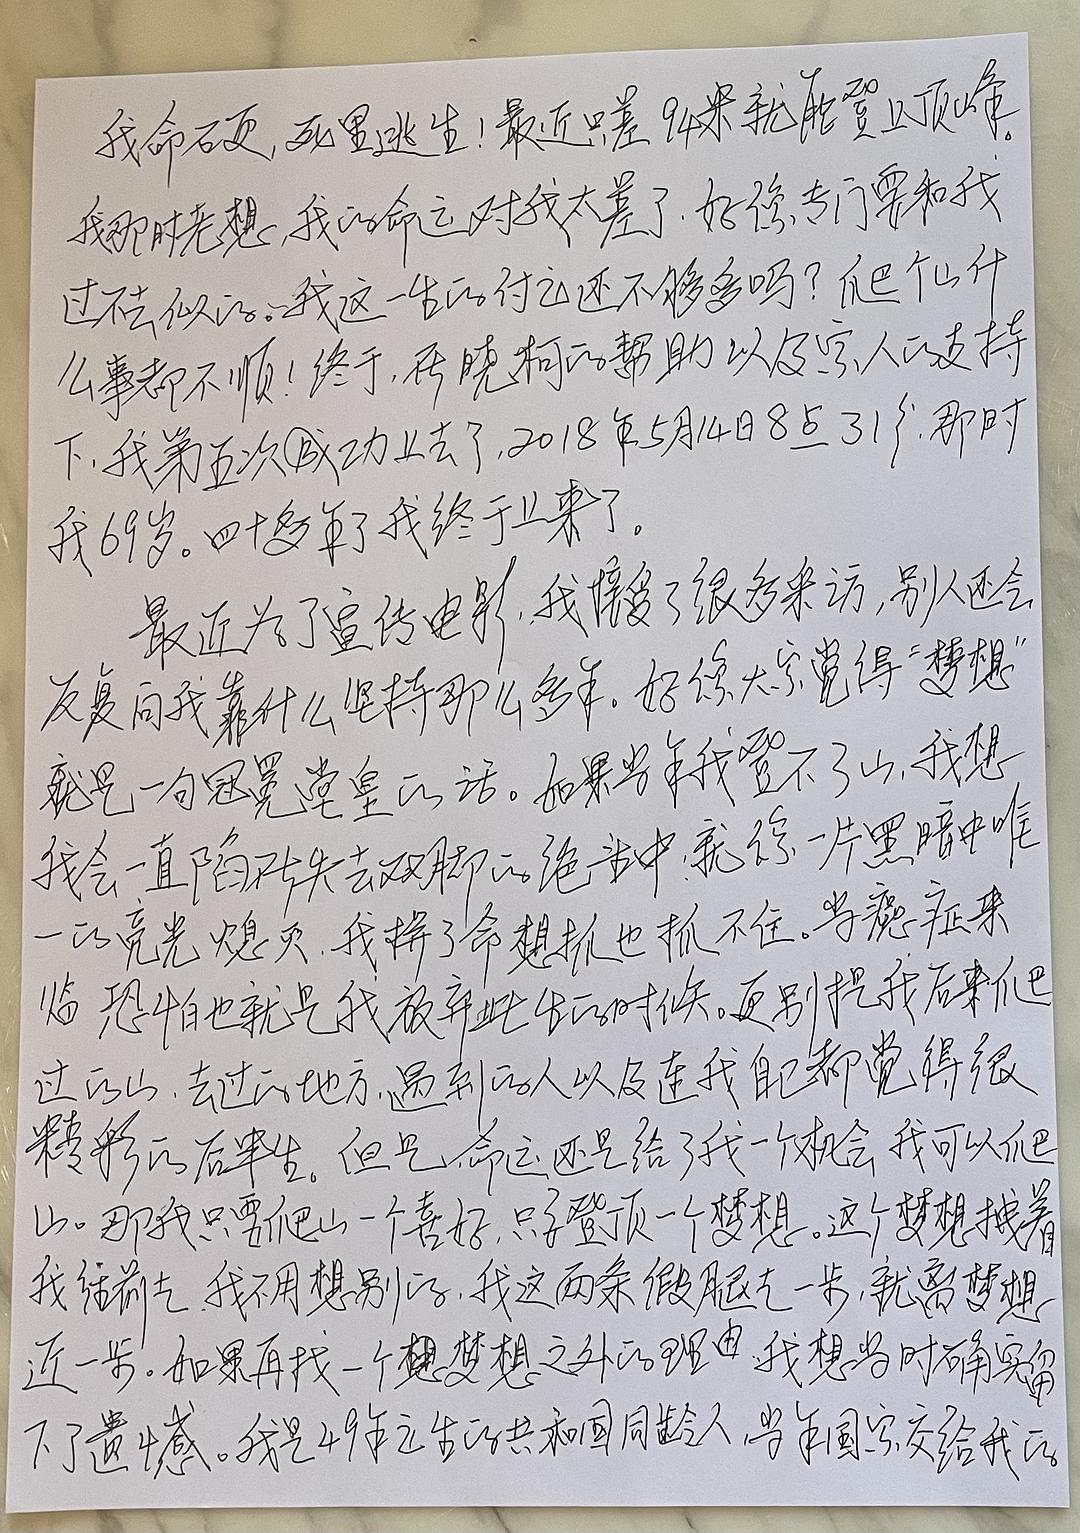 我命硬，死里逃生！最近只差94米就能登上顶峰。
我那时老想，我的命运对我太差了，好像专门要和我
过不去似的。我这一生的付出还不够多吗？爬个山什
么事都不顺！终于，在晓柯的帮助以及家人的支持
下，我第五次成功上去了，2018年5月14日8点31分，那时
我69岁。四十多年了我终于上来了。
最近为了宣传电影，我接受了很多采访，别人还会
反复问我靠什么坚持那么多年。好像大家觉得“梦想”
就是一句冠冕堂皇的话。如果当年我登不了山，我想
我会一直陷在失去双脚的绝望中，就像一片黑暗中唯
一的亮光熄灭，我拼了命想抓也抓不住。当癌症来
临恐怕也就是我放弃此生的时候。更别提我后来爬
过的山，去过的地方，遇到的人以及连我自己都觉得很
精彩的后半生。但是，命运还是给了我一个机会，我可以爬
山。那我只要爬山一个喜好，只要登顶一个梦想。这个梦想拽着
我往前走，我不用想别的，我这两条假腿走一步，就离梦想
近一步。如果再找一个梦想之外的理由，我想当时确实留
下了遗憾。我是49年出生的共和国同龄人，当年国家交给我的